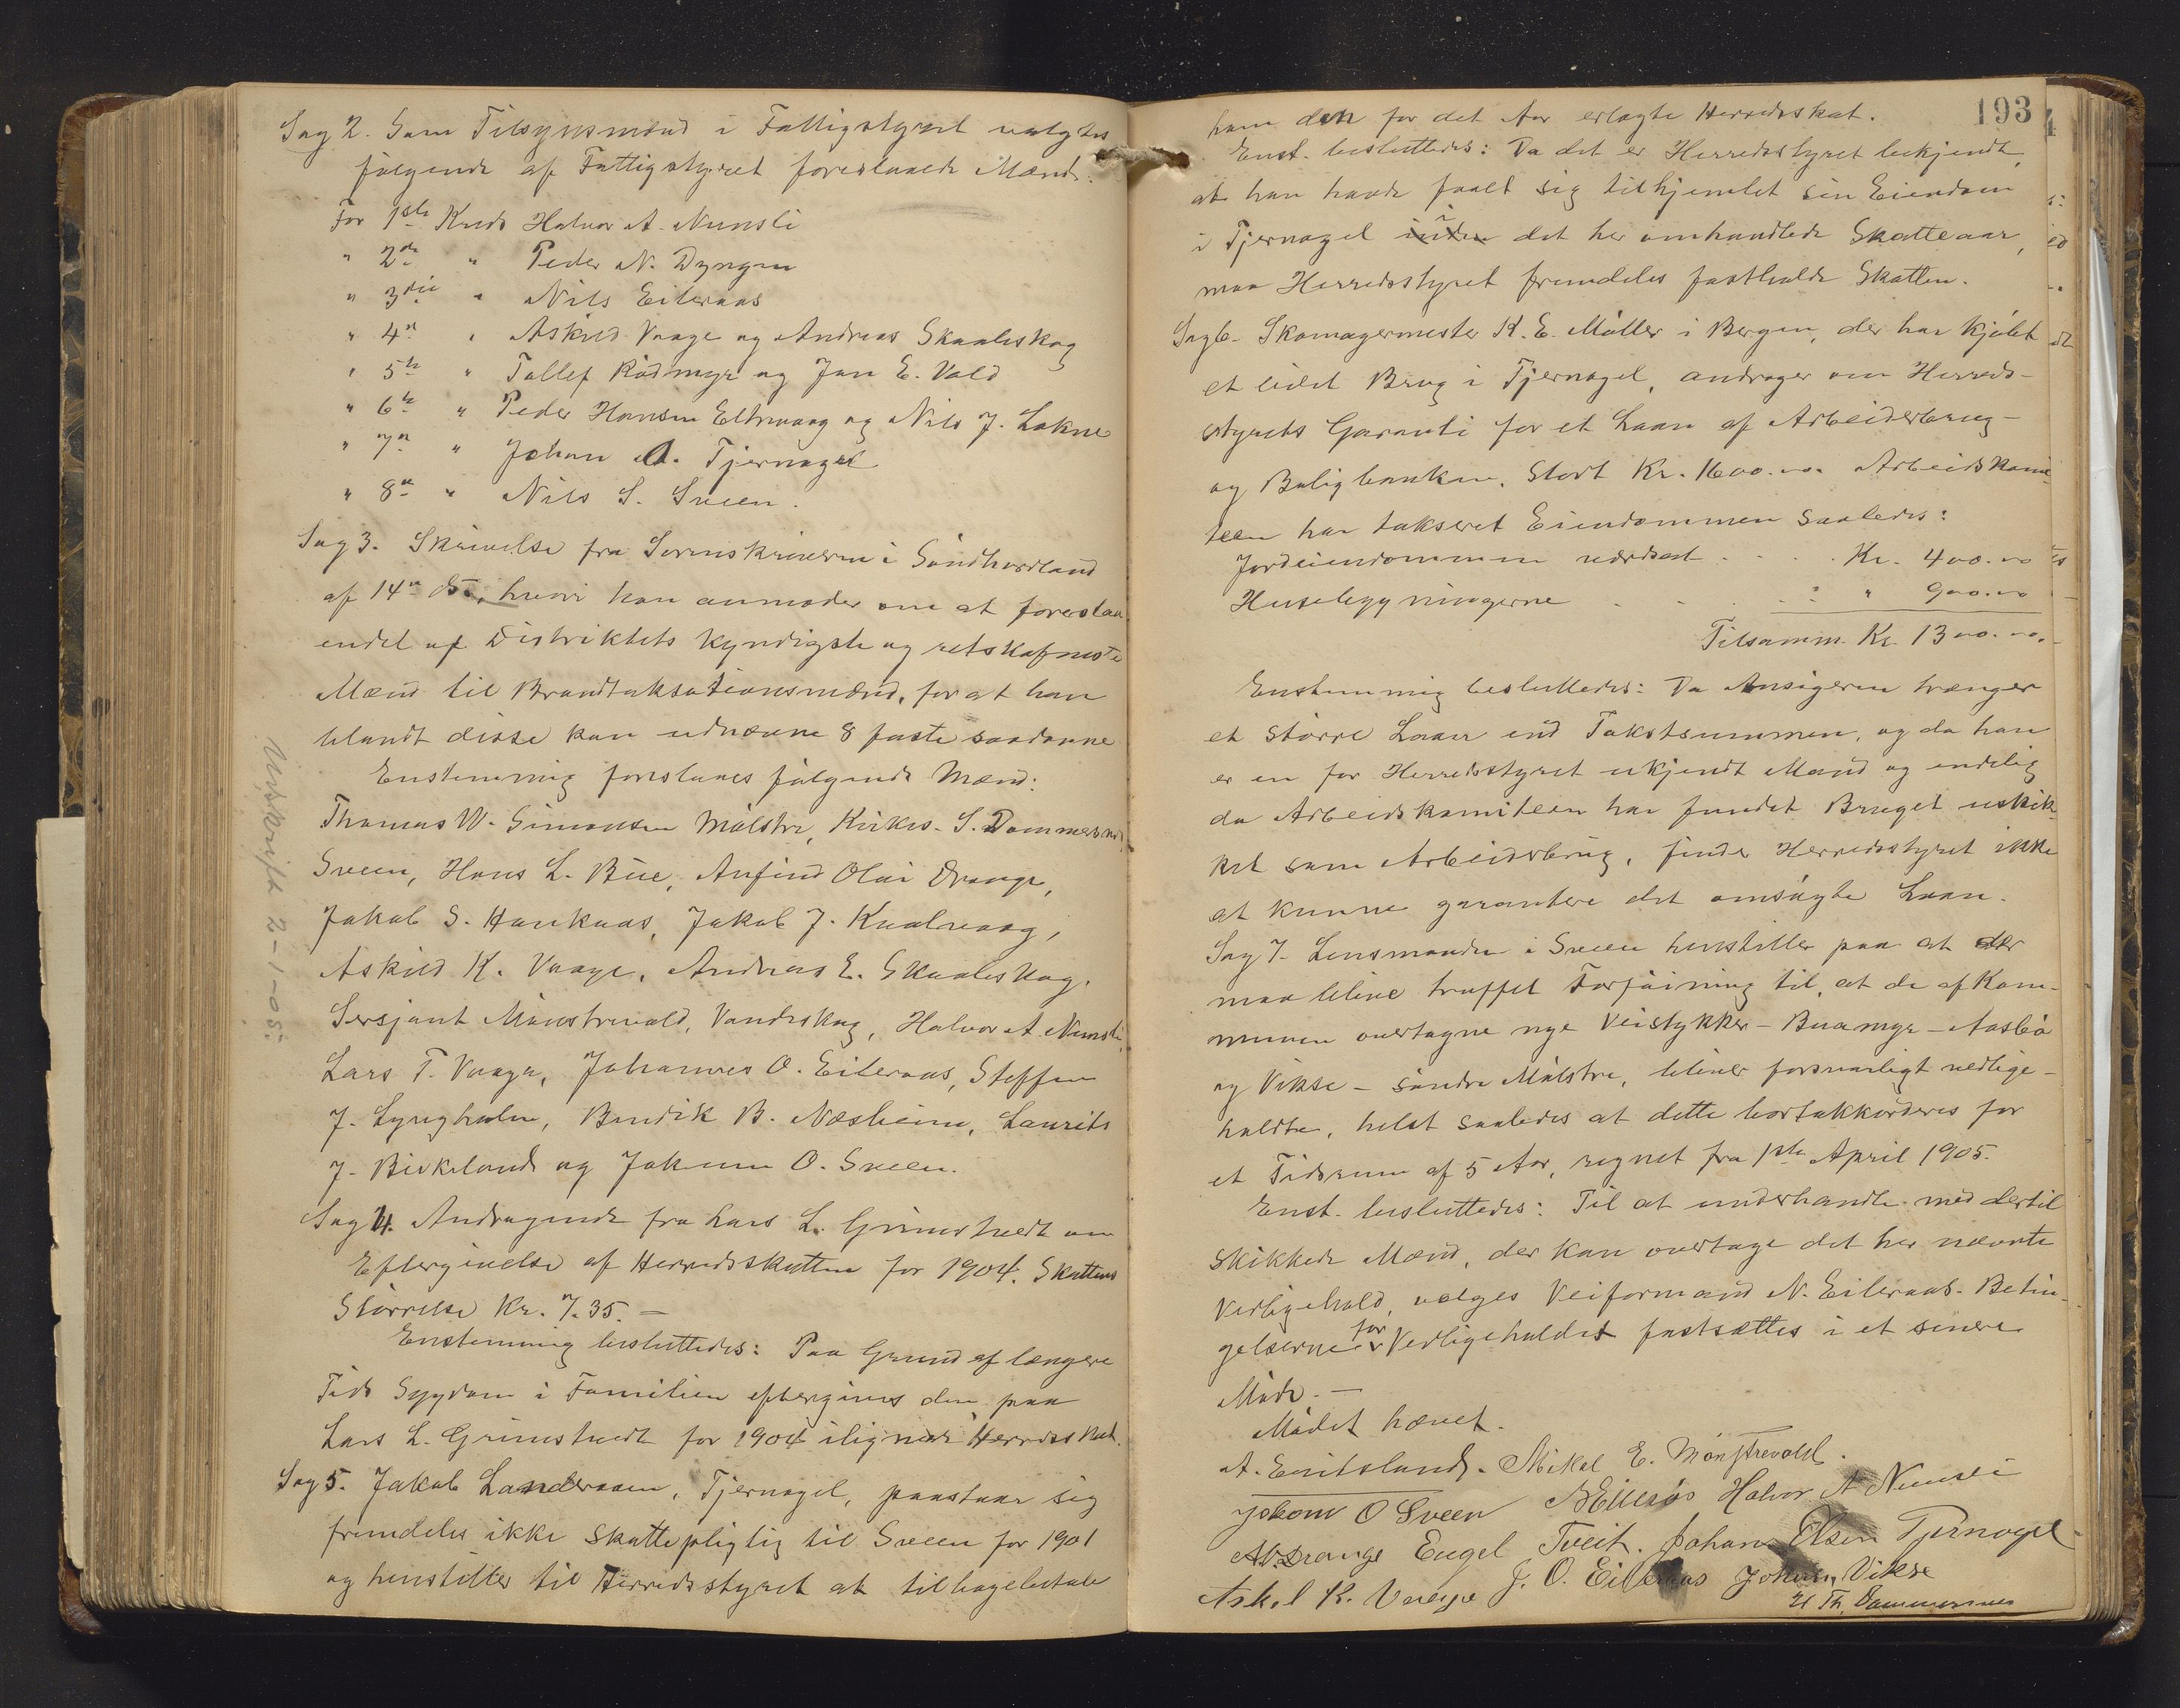 Sag 2. Som Tilsynsmænd i Fattigstyret valgtes
følgende af Fattigstyret foreslaaede Mænd:
For 1ste Kreds Halvor A. Nunsli
" 2den " Peder N. Dyngen
" 3die " Nils Eileraas
" 4de " Askild Vaage og Andreas Skaaleskog
" 5te " Tollef Rødmyr og Jon E. Vold
" 6te " Peder Hansen Eltravaag og Nils J. Lokne
" 7de " Johan O. Tjernagel
" 8de " Nils S. Sveen.
Sag 3. Skrivelse fra Sorenskriveren i Søndhordland
af 14de ds., hvori han anmoder om at foreslaa
endel af Distriktets kyndigste og retskafneste
Mænd til Brandtaksationsmænd, for at han
blandt disse kan udnævne 8 faste saadanne
Enstemmig foreslaaes følgende Mænd:
Thomas W. Simonsen Mølstre, Kirkes. S. Dommersnes,
Sveen, Hans L. Bue, Anfind Olai Drange,
Jakob S. Haukaas, Jakob J. Kvalevaag,
Askild K. Vaage, Andreas E. Skaaleskog.
Sersjant Mønstrevold, Vandeskog, Halvor A. Nunsli,
Lars T. Vaage, Johannes O. Eileraas, Steffen
J. Lyngholm, Bendik B. Næsheim, Laurits
J. Birkeland og Jokum O. Sveen.
Sag 4. Andragende fra Lars L. Grimstvedt om
Eftergivelse af Herredsskatten for 1904. Skattens
Størrelse Kr. 7.35. —
Enstemmig besluttedes: Paa Grund af længere
Tids Sygdom i Familien eftergives den paa
Lars L. Grimstvedt for 1904 ilignede Herredsskat.
Sag 5. Jakob Landeraaen, Tjernagel, paastaar sig
fremdeles ikke skattepligtig til Sveen for 1901
og henstiller til Herredsstyret at tilbagebetale
Udskrift 2-1-05.
193
ham den for det Aar erlagte Herredsskat.
Enst. besluttedes: Da det er Herredsstyret bekjendt,
at han havde faaet sig tilhjemlet sin Eiendom
i Tjernagel inden i det her omhandlede Skatteaar,
maa Herredsstyret fremdeles fastholde Skatten.
Sag 6. Skomagermester K. E. Møller i Bergen, der har kjøbt
et lidet Brug i Tjernagel, andrager om Herreds-
styrets Garanti for et Laan af Arbeiderbrug-
og Boligbanken, Stort Kr. 1600.00. Arbeidskomi-
teen har takseret Eiendommen saaledes:
Jordeiendommen værdsat . . . . Kr. 400.00
Husebygningerne . . . . " 900.00
Tilsamm. Kr. 1300.00.
Enstemmig besluttedes: Da Ansøgeren trænger
et større Laan end Takstsummen, og da han
er en for Herredsstyret ukjendt Mand og endelig
da Arbeidskomiteen har fundet Bruget uskik-
ket som Arbeidsbrug, finder Herredsstyret ikke
at kunne garantere det omsøgte Laan.
Sag 7. Lensmanden i Sveen henstiller paa at der
maa blive truffet Forføining til, at de af Kom-
munen overtagne nye Veistykker - Buamyr - Aasbø
og Vikse - søndre Mølstre, bliver forsvarligt vedlige-
holdte, helst saaledes at dette bortakkorderes for
et Tidsrum af 5 Aar, regnet fra 1ste April 1905.
Enst. besluttedes: Til at underhandle med dertil
skikkede Mænd, der kan overtage det her nævnte
Vedligehold, vælges Veiformand N. Eileraas. Betin-
gelserne for Vedligeholdet fastsættes i et senere
Møde. —
Mødet hævet.
A. Emitslands. Mikal E. Mønstrevold.
Jokom O Sveen NEileraas Halvor A Nunsli
AODrange Engel Tveit. Johan Olsen Tjernagel
Askel K. Vaage J. O. Eileraas Johan Vikse
H Th. Dommersnes